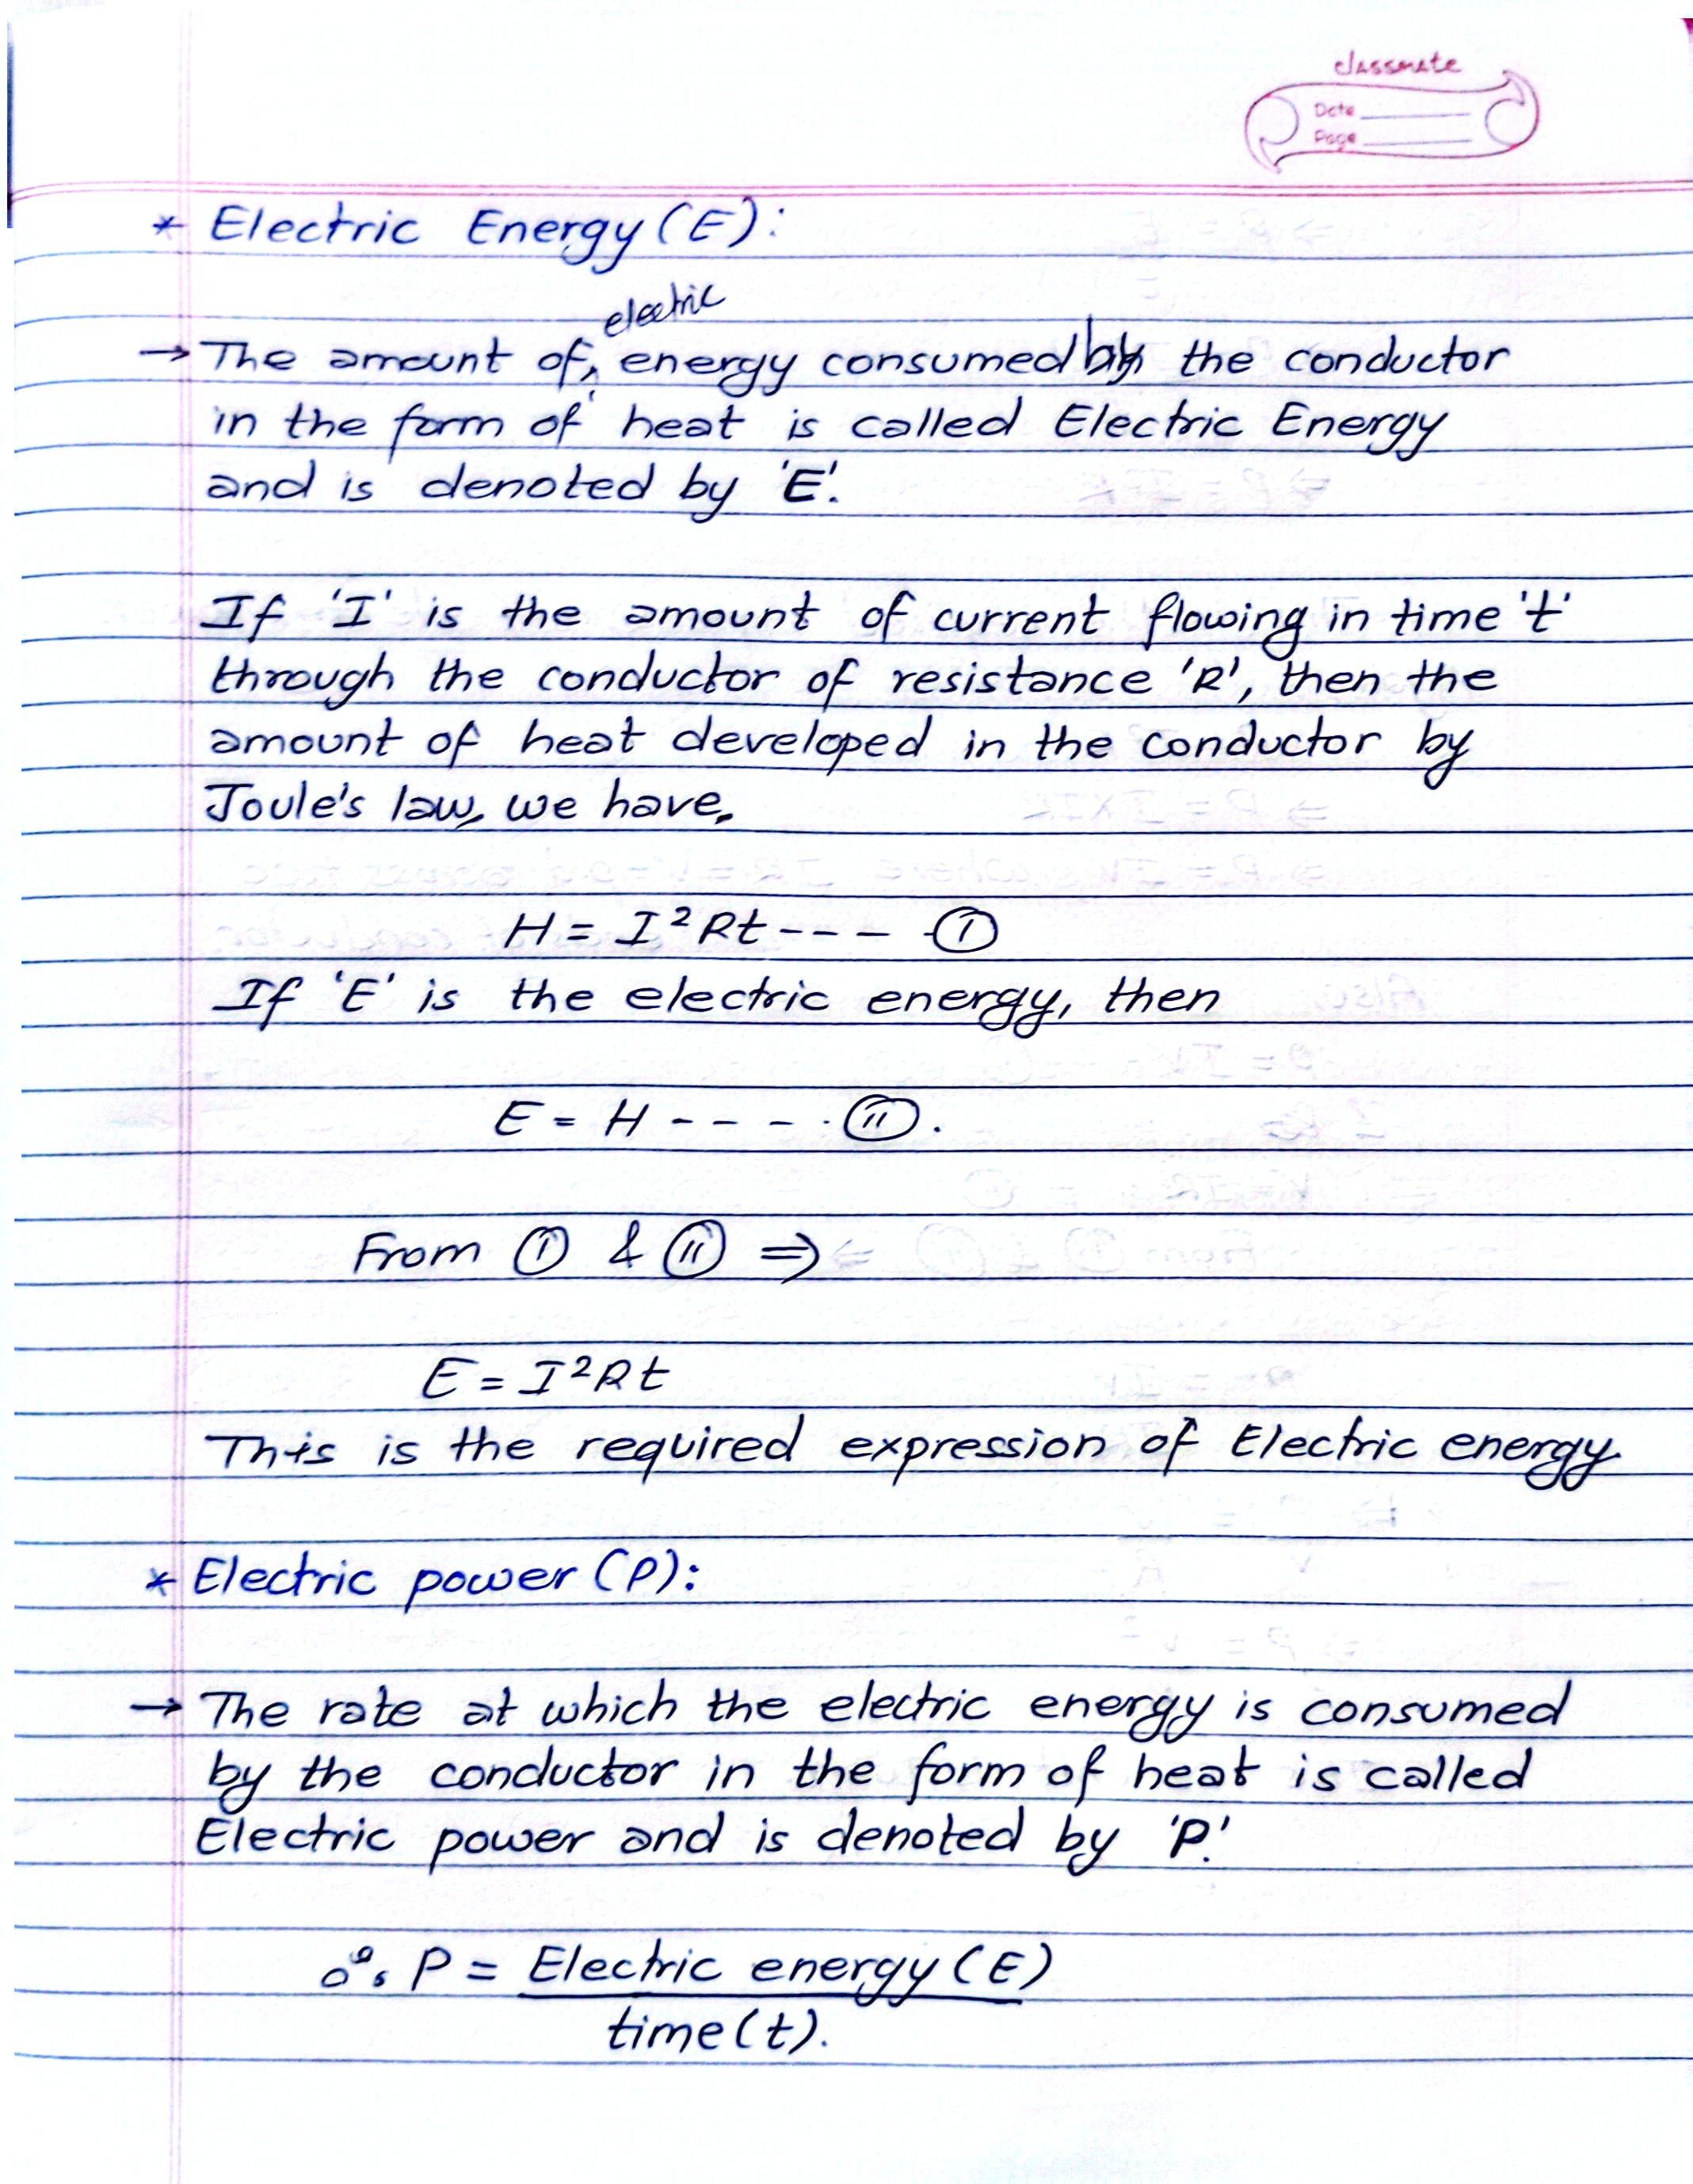 classmate
Date
Page
* Electric Energy (E):
electric
→ The amount of, energy consumed by the conductor
in the form of heat is called Electric Energy
and is denoted by 'E'.
If 'I' is the amount of current flowing in time 't'
through the conductor of resistance 'R', then the
amount of heat developed in the conductor by
Joule's law, we have,
H = I²Rt ---- (I)
If 'E' is the electric energy, then
E = H ---- (II).
From (I) & (II) ⇒
E = I²Rt
This is the required expression of Electric energy.
* Electric power (P):
→ The rate at which the electric energy is consumed
by the conductor in the form of heat is called
Electric power and is denoted by 'P'.
∴ P = Electric energy (E)
time (t).